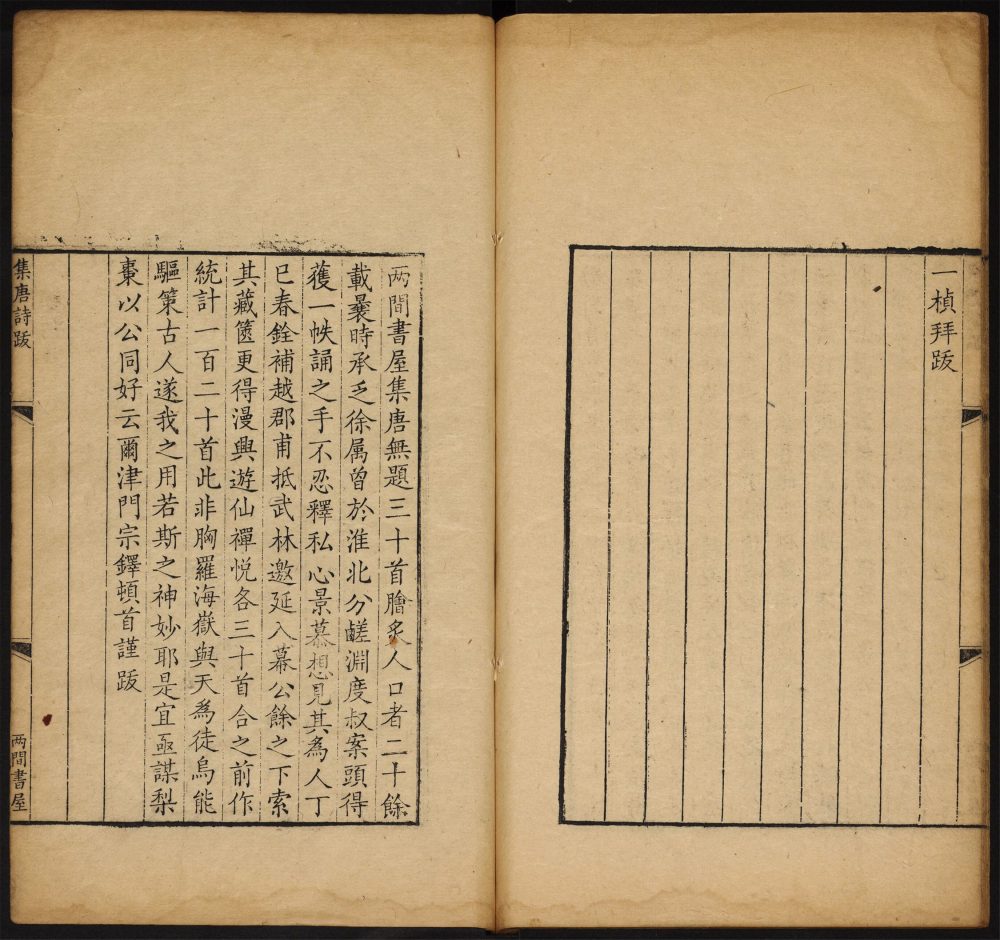 一楨拜跋
两間書屋集唐無題三十首膾炙人口者二十餘
載曩時承乏徐属曾於淮北分鹺淵度叔案頭得
獲一帙誦之手不忍釋私心景慕想見其為人丁
巳春銓補越郡甫抵武林邀延入幕公餘之下索
其藏篋更得漫興遊仙禪悦各三十首合之前作
統計一百二十首此非胸羅海嶽與天為徒烏能
驅策古人遂我之用若斯之神妙耶是宜亟謀梨
棗以公同好云爾津門宗鐸頓首謹跋
集唐詩跋
两間書屋